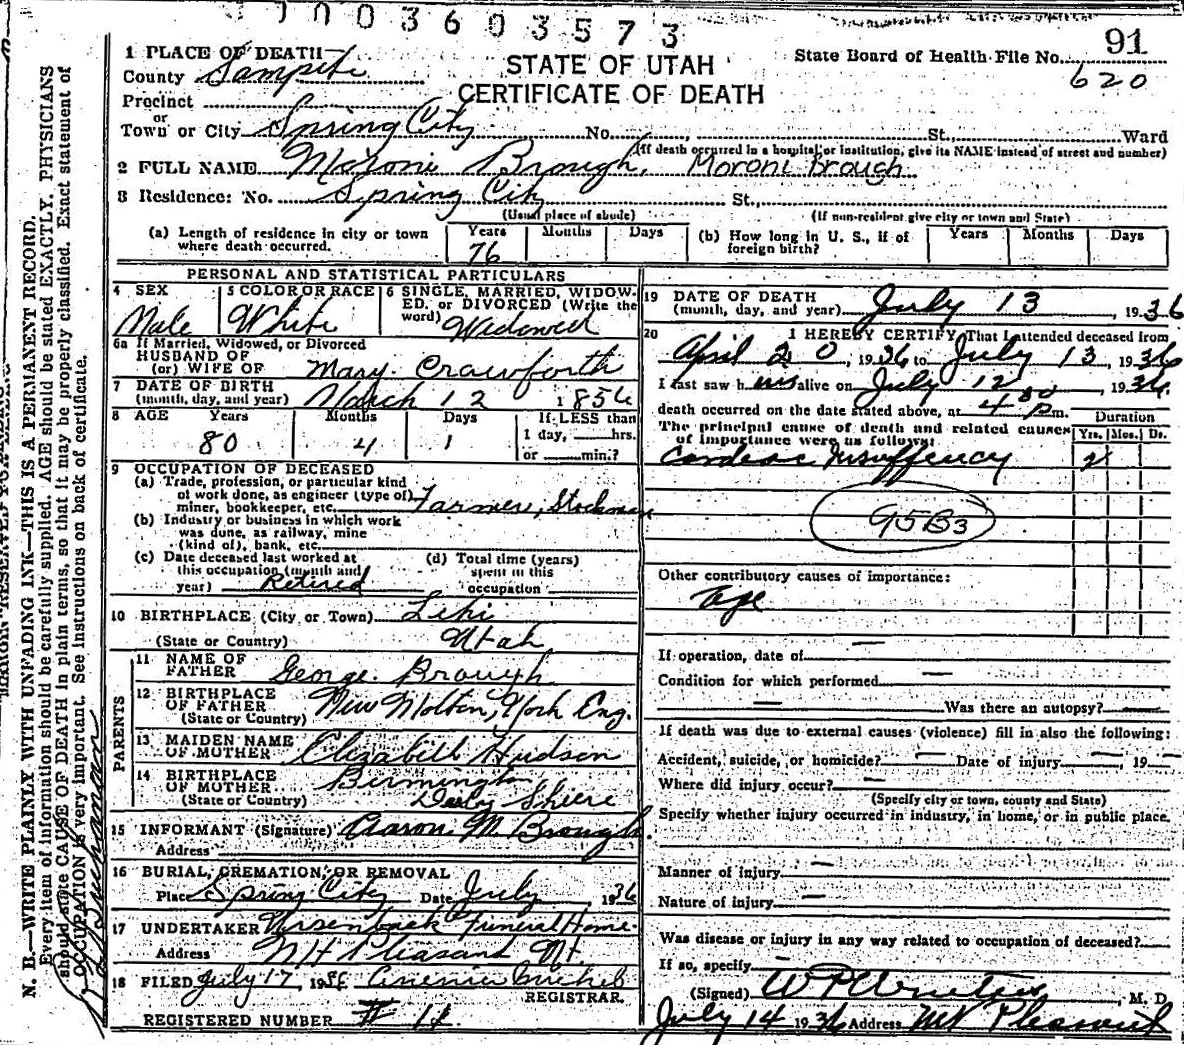 0003603573
91
STATE OF UTAH
CERTIFICATE OF DEATH
State Board of Health File No. 620
1 PLACE OF DEATH
County Sanpete
Precinct
or
Town or City Spring City No. St. Ward
(If death occurred in a hospital or institution, give its NAME instead of street and number)
2 FULL NAME Moroni Brough, Moroni Brough
3 Residence: No. Spring City St.,
(Usual place of abode) (If non-resident give city or town and State)
(a) Length of residence in city or town where death occurred. Years 76 Months Days
(b) How long in U. S., if of foreign birth? Years Months Days
PERSONAL AND STATISTICAL PARTICULARS
4 SEX Male
5 COLOR OR RACE White
6 SINGLE, MARRIED, WIDOWED, or DIVORCED (Write the word) Widowed
6a If Married, Widowed, or Divorced
HUSBAND OF
(or) WIFE OF Mary Crawforth
7 DATE OF BIRTH
(month, day, and year) March 12 1856
8 AGE Years 80 Months 4 Days 1
If LESS than
1 day, hrs.
or min.?
9 OCCUPATION OF DECEASED
(a) Trade, profession, or particular kind
of work done, as engineer (type of)
miner, bookkeeper, etc. Farmer, Stockman
(b) Industry or business in which work
was done, as railway, mine
(kind of), bank, etc.
(c) Date deceased last worked at
this occupation (month and
year) Retired
(d) Total time (years)
spent in this
occupation
10 BIRTHPLACE (City or Town) Lehi
(State or Country) Utah
PARENTS
11 NAME OF
FATHER George Brough
12 BIRTHPLACE
OF FATHER New Molton, York Eng.
(State or Country)
13 MAIDEN NAME
OF MOTHER Elizabeth Hudson
14 BIRTHPLACE
OF MOTHER Birmington
(State or Country) Derby Sheire
15 INFORMANT (Signature) Aaron M. Brough.
Address
16 BURIAL, CREMATION, OR REMOVAL
Place Spring City Date July 1936
17 UNDERTAKER Funeral Home
Address Mt Pleasant Ut.
18 FILED July 17, 1936
REGISTRAR.
REGISTERED NUMBER # 11
19 DATE OF DEATH
(month, day, and year) July 13, 1936
20 I HEREBY CERTIFY, That I attended deceased from
April 20, 1936 to July 13 1936
I last saw him alive on July 12 1936
death occurred on the date stated above, at 4 00 p m.
The principal cause of death and related causes
of importance were as follows:
Duration
Yrs. Mos. Ds.
Cardiac Insuffency 2
95B3
Other contributory causes of importance:
Age
If operation, date of —
Condition for which performed —
— Was there an autopsy? —
If death was due to external causes (violence) fill in also the following:
Accident, suicide, or homicide? — Date of injury —, 19 —
Where did injury occur? —
(Specify city or town, county and State)
Specify whether injury occurred in industry, in home, or in public place.
Manner of injury —
Nature of injury —
Was disease or injury in any way related to occupation of deceased?
If so, specify
(Signed) , M. D.
July 14 1936 Address Mt Pleasant
N. B.—WRITE PLAINLY WITH UNFADING INK—THIS IS A PERMANENT RECORD.
Every item of information should be carefully supplied. AGE should be stated EXACTLY. PHYSICIANS
should state CAUSE OF DEATH in plain terms, so that it may be properly classified. Exact statement of
OCCUPATION is very important. See instructions on back of certificate.